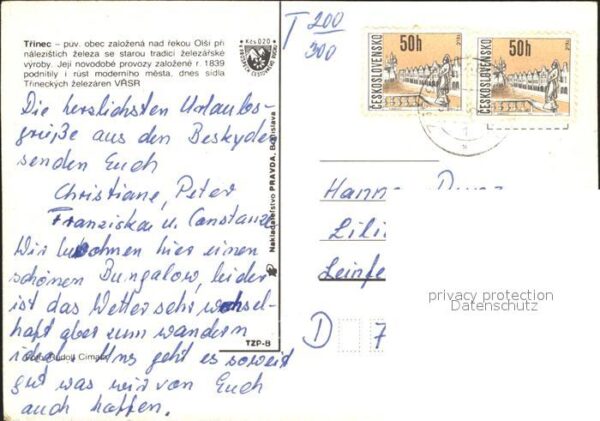 Třinec – puv. obec založená nad řekou Olší při
nálezištích železa se starou tradicí železářské
výroby. Její novodobé provozy založené r. 1839
podnítily i růst moderního města, dnes sídla
Třineckých železáren VŘSR
Kčs 0,20
T 200
300
50h
ČESKOSLOVENSKO
50h
ČESKOSLOVENSKO
Die herzlichsten Urlaubs-
grüße aus den Beskyden
senden Euch
Christiane, Peter
Franziska u. Constanze
Wir bewohnen hier einen
schönen Bungalow, leider
ist das Wetter sehr wechsel-
haft aber zum wandern
ideal. Uns geht es soweit
gut was wir von Euch
auch hoffen.
Rudolf
Nakladatelstvo PRAVDA, Bratislava
TZP-B
Hann
Lili
Leinfe
D 7
privacy protection
Datenschutz